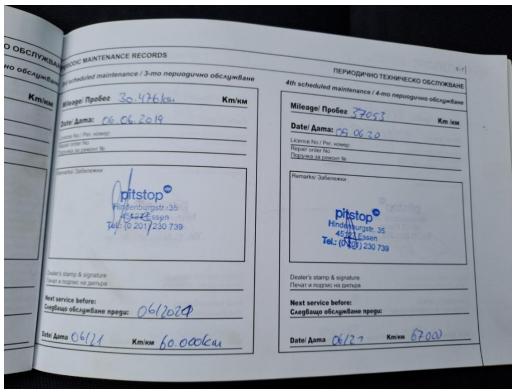 PERIODIC MAINTENANCE RECORDS
3rd scheduled maintenance / 3-то периодично обслужване
Mileage/ Пробег 30.476 km Km/км
Date/ Дата: 06.06.2019
Licence No / Рег. номер:
Repair order No.
Поръчка за ремонт №
Remarks/ Забележки
pitstop
Hindenburgstr. 35
45127 Essen
Tel.: (0 201) 230 739
Dealer's stamp & signature
Печат и подпис на дилъра
Next service before:
Следващо обслужване преди: 06/2021
Date/ Дата 06/21 Km/км 60.000km
6-7
ПЕРИОДИЧНО ТЕХНИЧЕСКО ОБСЛУЖВАНЕ
4th scheduled maintenance / 4-то периодично обслужване
Mileage/ Пробег 37053 Km/км
Date/ Дата: 09.06.20
Licence No / Рег. номер:
Repair order No.
Поръчка за ремонт №
Remarks/ Забележки
pitstop
Hindenburgstr. 35
45127 Essen
Tel.: (0 201) 230 739
Dealer's stamp & signature
Печат и подпис на дилъра
Next service before:
Следващо обслужване преди:
Date/ Дата 06/21 Km/км 67000